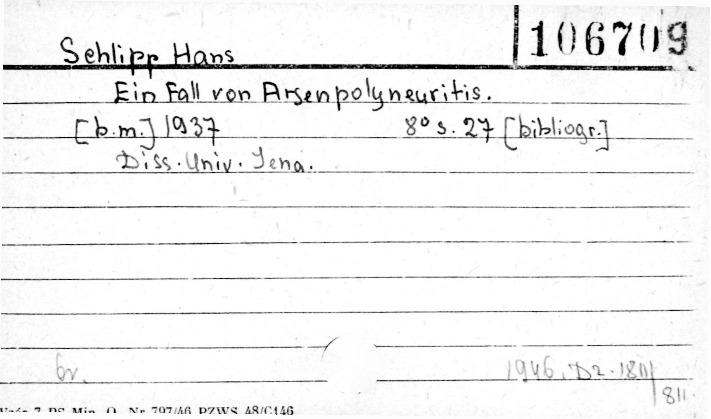 106709
Schlipp Hans
Ein Fall von Arsenpolyneuritis.
[b.m.] 1937 8° s. 27 [bibliogr.]
Diss. Univ. Jena.
1946. D2. 1811/811
PS Min. O. Nr 797/46 PZWS 48/C146